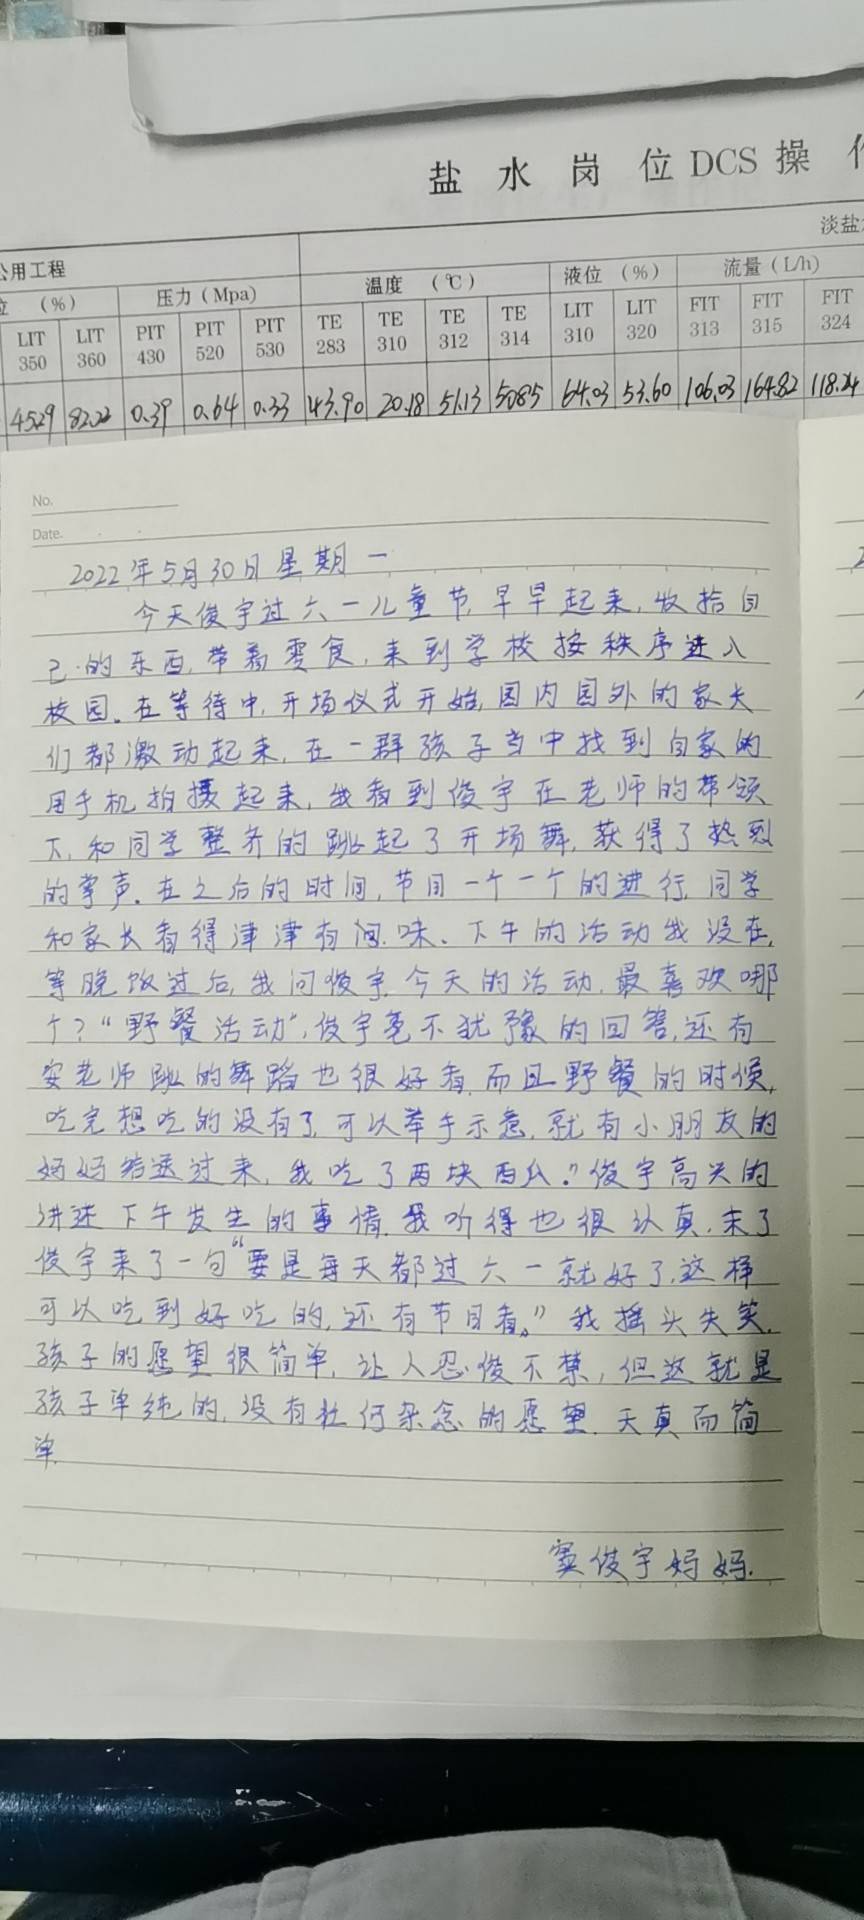 盐 水 岗 位 DCS 操 作
公用工程 淡盐水
位 (%) 压力(Mpa) 温度 (℃) 液位 (%) 流量(L/h)
LIT 350 LIT 360 PIT 430 PIT 520 PIT 530 TE 283 TE 310 TE 312 TE 314 LIT 310 LIT 320 FIT 313 FIT 315 FIT 324
45.29 82.22 0.39 0.64 0.33 43.90 20.18 51.13 50.85 64.03 53.60 106.03 164.82 118.24
No.
Date.
2022年5月30日星期一
今天俊宇过六一儿童节,早早起来,收拾自
己的东西,带着零食,来到学校按秩序进入
校园。在等待中,开场仪式开始,园内园外的家长
们都激动起来,在一群孩子当中找到自家的
用手机拍摄起来,我看到俊宇在老师的带领
下,和同学整齐的跳起了开场舞,获得了热烈
的掌声。在之后的时间,节目一个一个的进行,同学
和家长看得津津有味、下午的活动我没在,
等晚饭过后,我问俊宇,今天的活动,最喜欢哪
个?“野餐活动”,俊宇毫不犹豫的回答,还有
安老师跳的舞蹈也很好看,而且野餐的时候,
吃完想吃的没有了,可以举手示意,就有小朋友的
妈妈给送过来,我吃了两块西瓜。”俊宇高兴的
讲述下午发生的事情,我听得也很认真,末了
俊宇来了一句“要是每天都过六一就好了,这样
可以吃到好吃的,还有节目看。”我摇头失笑,
孩子的愿望很简单,让人忍俊不禁,但这就是
孩子单纯的,没有任何杂念的愿望,天真而简
单.
窦俊宇妈妈.